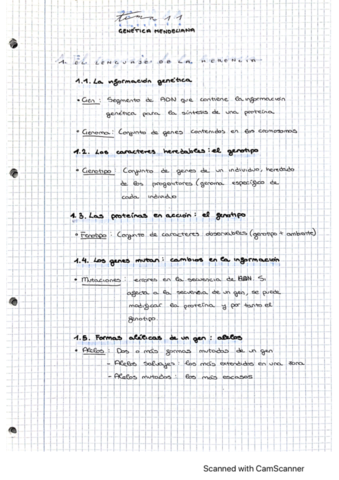 tema 11
GENÉTICA MENDELIANA
1. EL LENGUAJE DE LA HERENCIA
1.1. La información genética
• Gen : Segmento de ADN que contiene la información
genética para la síntesis de una proteína
• Genoma : Conjunto de genes contenidos en los cromosomas
1.2. Los caracteres heredables : el genotipo
• Genotipo : Conjunto de genes de un individuo, heredado
de los progenitores (genoma específico de
cada individuo
1.3. Las proteínas en acción : el genotipo
• Fenotipo : Conjunto de caracteres observables (genotipo + ambiente)
1.4. Los genes mutan : cambios en la información
• Mutaciones : errores en la secuencia de ADN. Si
afecta a la secuencia de un gen, se puede
modificar la proteína y por tanto el
genotipo.
1.5. Formas alélicas de un gen : alelos
• Alelos : Dos o más formas mutadas de un gen
- Alelos salvajes : los más extendidos en una zona
- Alelos mutados : los más escasos
Scanned with CamScanner